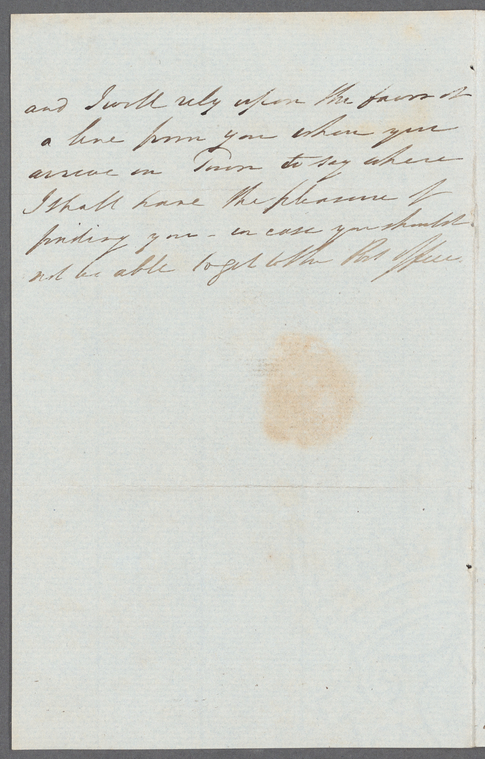 and I will rely upon the favor of
a line from you when you
arrive in Town to say where
I shall have the pleasure of
finding you - in case you should
not be able to get to the Post Office